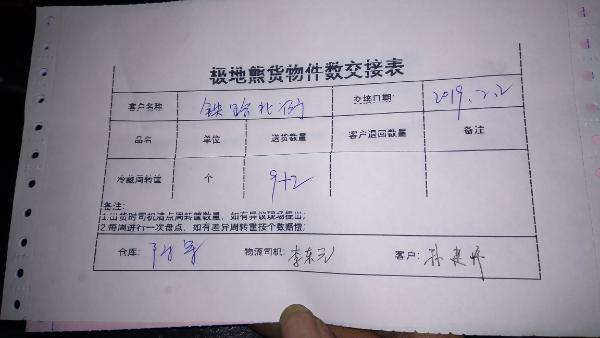 极地熊货物件数交接表
客户名称 铁路北街 交接日期: 2019.2.2
品名 单位 送货数量 客户退回数量 备注
冷藏周转筐 个 9+2
备注:
1.出货时司机清点周转筐数量，如有异议现场提出;
2.每周进行一次盘点，如有差异周转筐按个数赔偿;
仓库: 物流司机: 李东元 客户: 孙